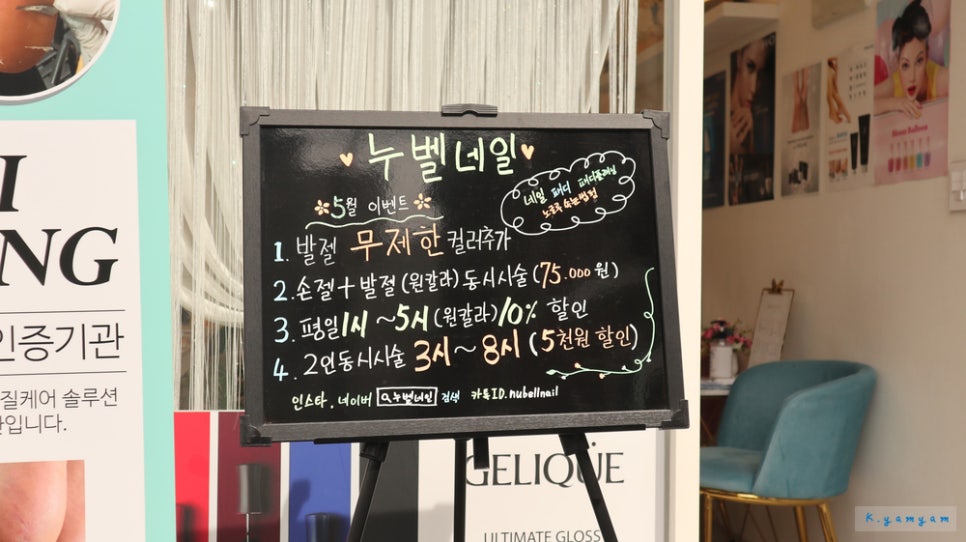 누벨네일
네일 패디
5월 이벤트
1. 발젤 무제한 컬러추가
2. 손젤+발젤 (원칼라) 동시시술 (75.000원)
3. 평일 1시 ~ 5시 (원칼라) 10% 할인
4. 2인동시시술 3시 ~ 8시 (5천원 할인)
인스타. 네이버 누벨네일 검색 카톡ID. nubellnail
NG
인증기관
질케어 솔루션
입니다.
GELIQUE
ULTIMATE GLOSS
K.yamyam